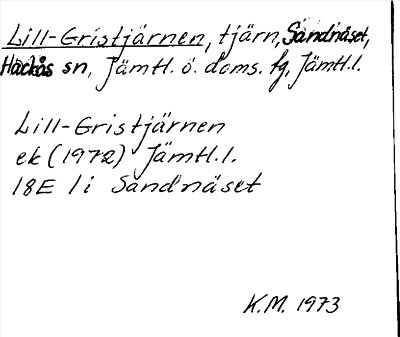 Lill-Gristjärnen, tjärn, Sandnäset,
Hackås sn, Jämtl. ö. doms. fg, Jämtl.l.
Lill-Gristjärnen
ek (1972) Jämtl.l.
18E 1i Sandnäset
K.M. 1973